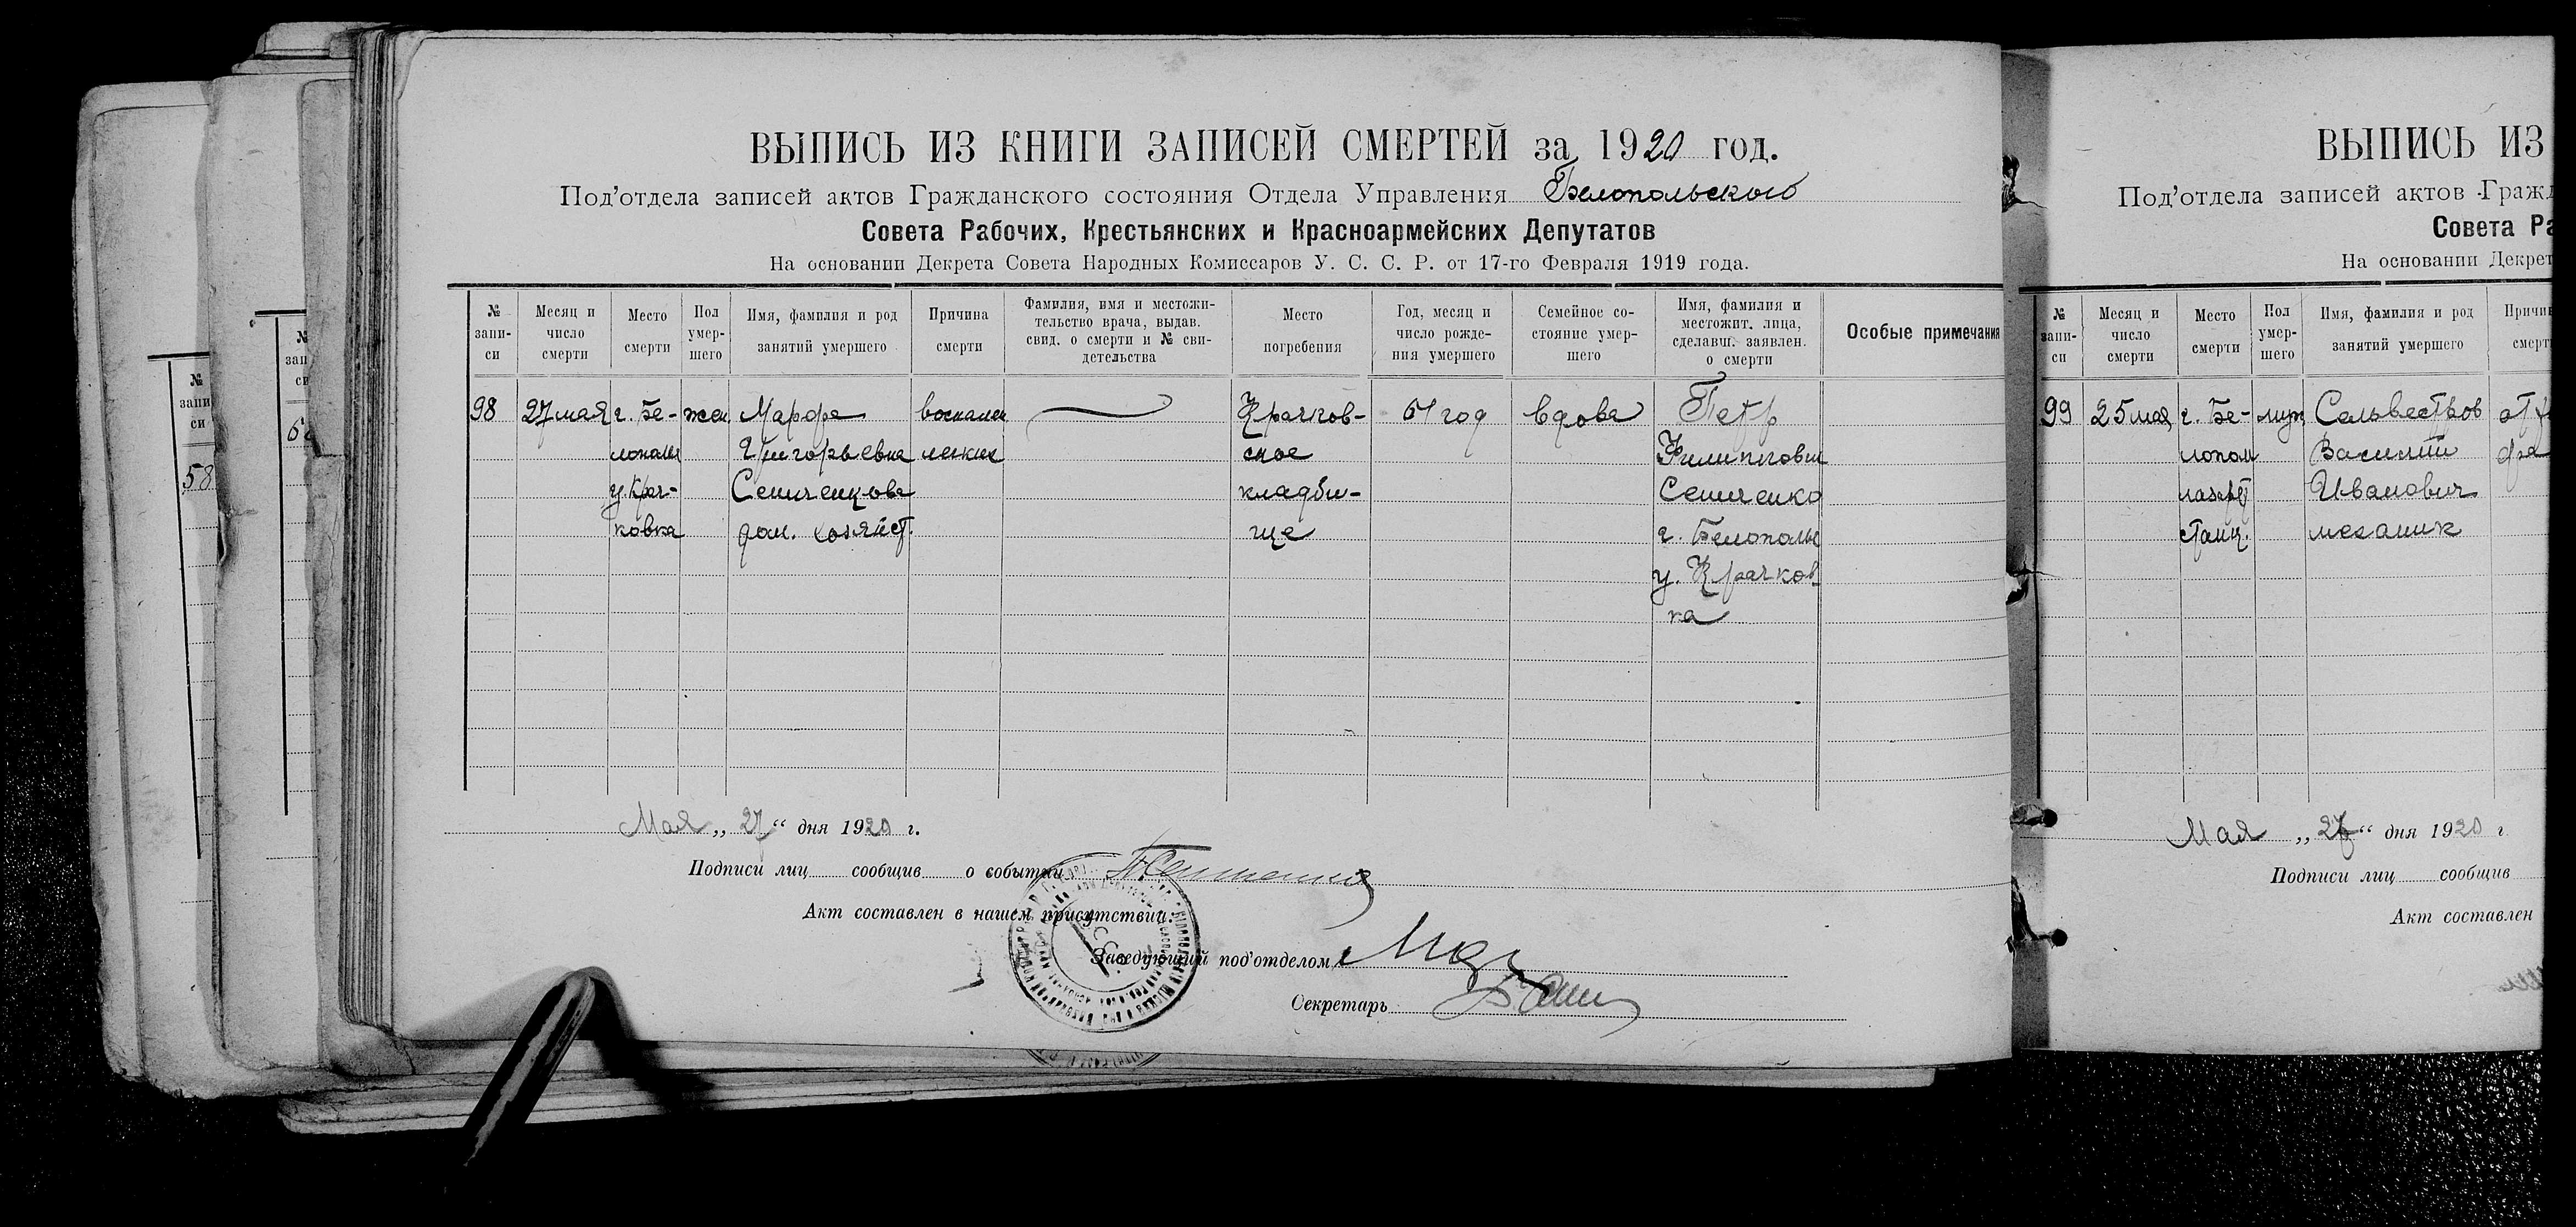 ВЫПИСЬ ИЗ КНИГИ ЗАПИСЕЙ СМЕРТЕЙ за 1920 год.
Под'отдела записей актов Гражданского состояния Отдела Управления Белопольского
Совета Рабочих, Крестьянских и Красноармейских Депутатов
На основании Декрета Совета Народных Комиссаров У. С. С. Р. от 17-го Февраля 1919 года.
№ запи-
си
Месяц и
число
смерти
Место
смерти
Пол
умер-
шего
Имя, фамилия и род
занятий умершего
Причина
смерти
Фамилия, имя и местожи-
тельство врача, выдав.
свид. о смерти и № сви-
детельства
Место
погребения
Год, месяц и
число рожде-
ния умершего
Семейное со-
стояние умер-
шего
Имя, фамилия и
местожит. лица,
сделавш. заявлен.
о смерти
Особые примечания
98
27 мая
г. Бе-
лополье
у. Крач-
ковка
жен.
Марфа
Григорьевна
Сенченкова
дом. хозяйст.
воспален
легких
Крачков-
ское
кладби-
ще
61 год
вдова
Петр
Филиппович
Сенченко
г. Белополье
у. Крачков-
ка
Мая „ 27 “ дня 1920 г.
Подписи лиц сообщив о событии
Акт составлен в нашем присутствии:
Заведующий под'отделом
Секретарь
№
запи
си
58
№
зап
си
ВЫПИСЬ ИЗ
Под'отдела записей актов Гражд
Совета Ра
На основании Декрет
№
запи-
си
Месяц и
число
смерти
Место
смерти
Пол
умер-
шего
Имя, фамилия и род
занятий умершего
Причин
смерт
99
25 мая
г. Бе-
лопол
лазарет
станц.
муж
Сельвестров
Василий
Иванович
механик
от
Мая „ 27 “ дня 1920 г
Подписи лиц сообщив
Акт составлен